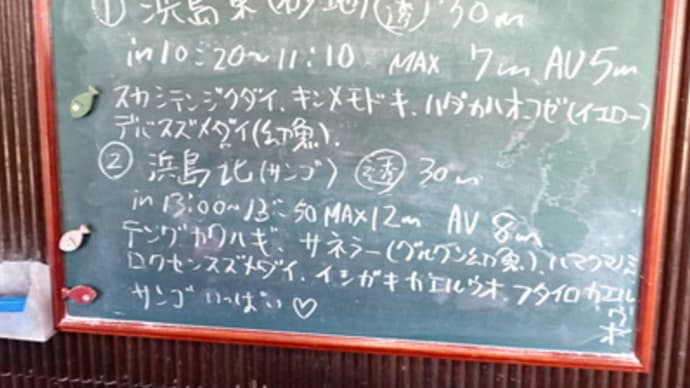 ① 浜島東(砂地) 透 30m
in 10:20~11:10 MAX 7m、AV 5m
スカシテンジクダイ、キンメモドキ、ハダカハオコゼ(イエロー)
デバスズメダイ(幼魚)、
② 浜島北(サンゴ) 透 30m
in 13:00~13:50 MAX 12m AV 8m
テングカワハギ、サネラー(グルクン幼魚)、ハマクマノミ
ロクセンスズメダイ、イシガキカエルウオ、フタイロカエルウオ
サンゴいっぱい♡